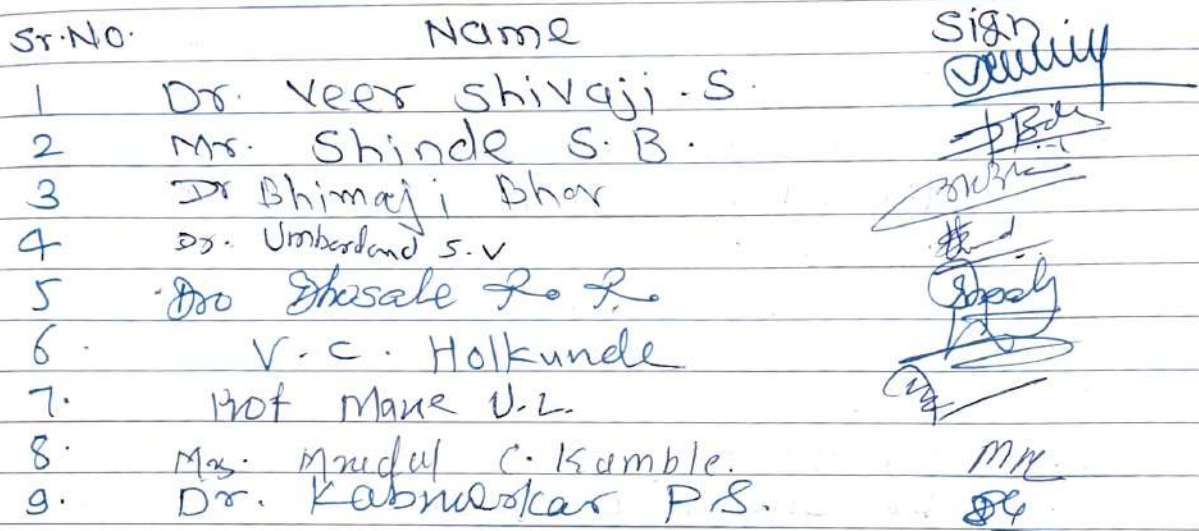 Sr.No. Name Sign
1 Dr. Veer Shivaji.S.
2 Mr. Shinde S.B.
3 Dr Bhimaji Bhor
4 Dr. S.V
5 Dr. Bhosale R. R.
6. V.C. Holkunde
7. Prof Mane U.L.
8. Mrudul C. Kamble.
9. Dr. P.S.